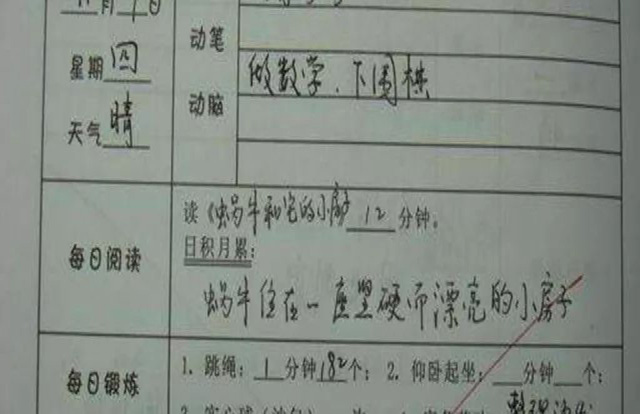 月 日
动笔
星期四
做数学、下围棋
动脑
天气晴
读《蜗牛和它的小房子 12 分钟。
日积月累:
每日阅读
蜗牛住在一座坚硬而漂亮的小房子
1. 跳绳: 1 分钟182个; 2. 仰卧起坐: 分钟 个;
每日锻炼